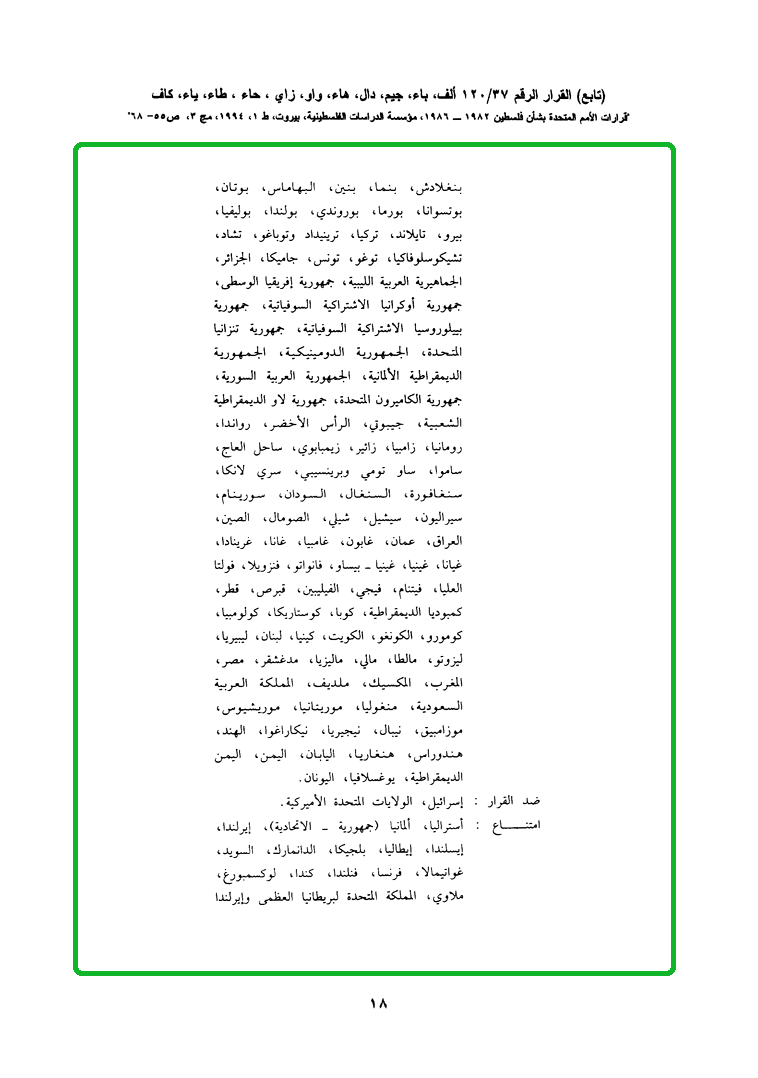 (تابع) القرار الرقم ١٢٠/٣٧ ألف، باء، جيم، دال، هاء، واو، زاي ، حاء ، طاء، ياء، كاف
"قرارات الأمم المتحدة بشأن فلسطين ١٩٨٢ ــ ١٩٨٦، مؤسسة الدراسات الفلسطينية، بيروت، ط ١، ١٩٩٤، مج ٣، ص٥٥- ٦٨"
بنغلادش، بنما، بنين، البهاماس، بوتان،
بوتسوانا، بورما، بوروندي، بولندا، بوليفيا،
بيرو، تايلاند، تركيا، ترينيداد وتوباغو، تشاد،
تشيكوسلوفاكيا، توغو، تونس، جاميكا، الجزائر،
الجماهيرية العربية الليبية، جمهورية إفريقيا الوسطى،
جمهورية أوكرانيا الاشتراكية السوفياتية، جمهورية
بييلوروسيا الاشتراكية السوفياتية، جمهورية تنزانيا
المتحدة، الجمهورية الدومينيكية، الجمهورية
الديمقراطية الألمانية، الجمهورية العربية السورية،
جمهورية الكاميرون المتحدة، جمهورية لاو الديمقراطية
الشعبية، جيبوتي، الرأس الأخضر، رواندا،
رومانيا، زامبيا، زائير، زيمبابوي، ساحل العاج،
ساموا، ساو تومي وبرينسيبي، سري لانكا،
سنغافورة، السنغال، السودان، سورينام،
سيراليون، سيشيل، شيلي، الصومال، الصين،
العراق، عمان، غابون، غامبيا، غانا، غرينادا،
غيانا، غينيا، غينيا ــ بيساو، فانواتو، فنزويلا، فولتا
العليا، فيتنام، فيجي، الفيليبين، قبرص، قطر،
كمبوديا الديمقراطية، كوبا، كوستاريكا، كولومبيا،
كومورو، الكونغو، الكويت، كينيا، لبنان، ليبيريا،
ليزوتو، مالطا، مالي، ماليزيا، مدغشقر، مصر،
المغرب، المكسيك، ملديف، المملكة العربية
السعودية، منغوليا، موريتانيا، موريشيوس،
موزامبيق، نيبال، نيجيريا، نيكاراغوا، الهند،
هندوراس، هنغاريا، اليابان، اليمن، اليمن
الديمقراطية، يوغسلافيا، اليونان.
ضد القرار : إسرائيل، الولايات المتحدة الأميركية.
امتنـــــاع : أستراليا، ألمانيا (جمهورية ــ الاتحادية)، إيرلندا،
إيسلندا، إيطاليا، بلجيكا، الدانمارك، السويد،
غواتيمالا، فرنسا، فنلندا، كندا، لوكسمبورغ،
ملاوي، المملكة المتحدة لبريطانيا العظمى وإيرلندا
١٨